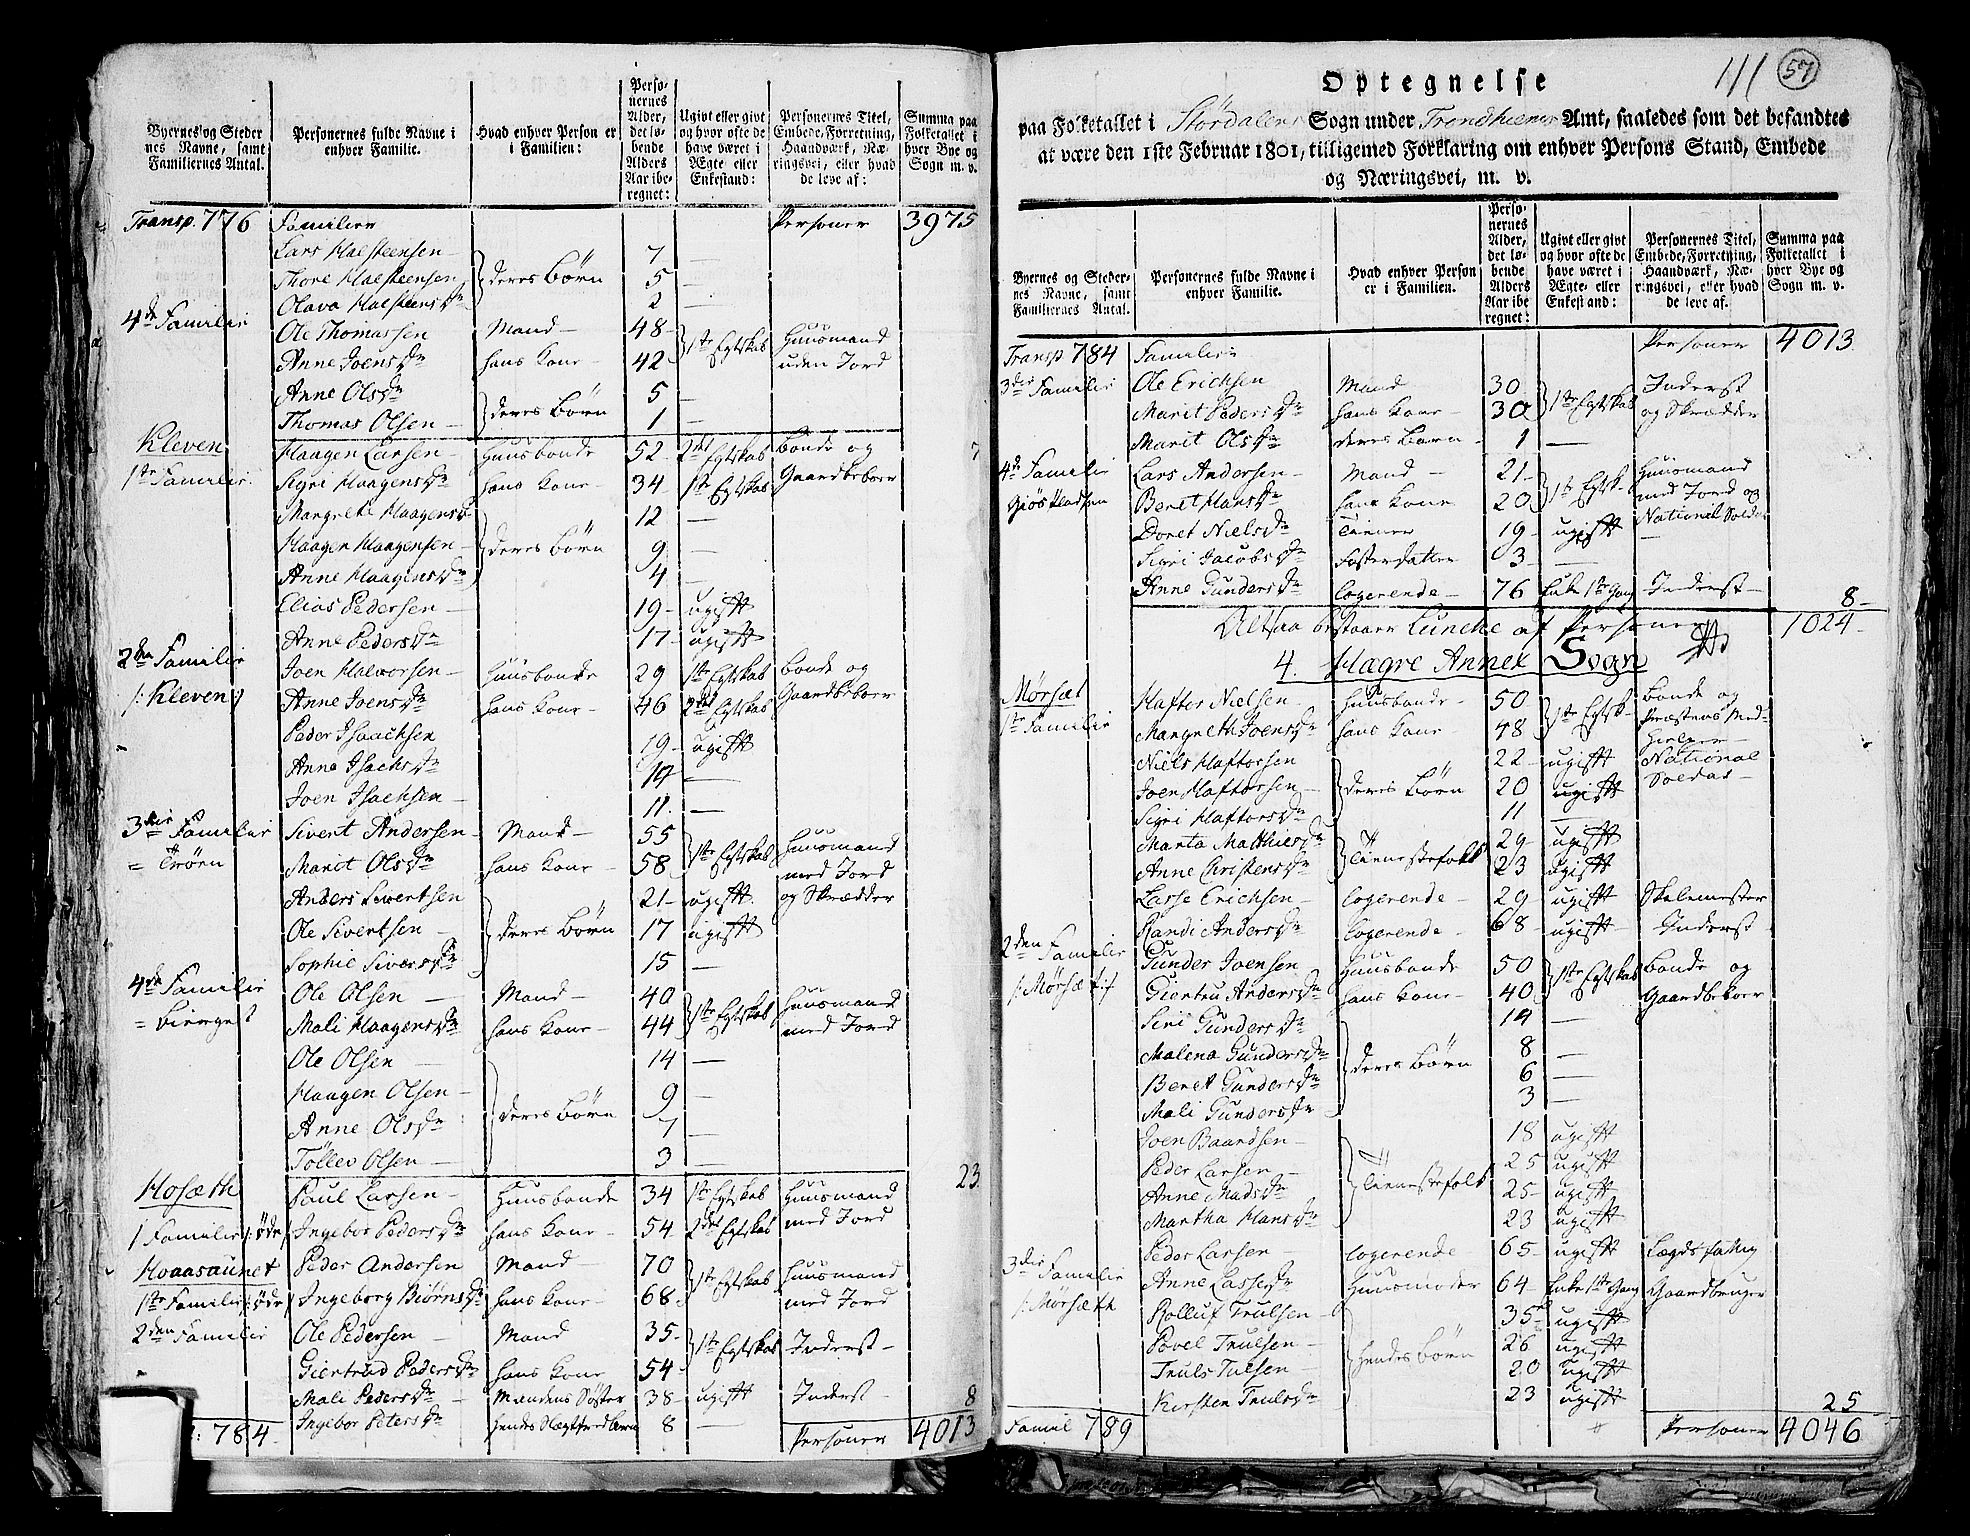 Byernes og Stedernes Navne, samt Familiernes Antal. | Personernes fulde Navne i enhver Familie. | Hvad enhver Person er i Familien: | Personernes Alder, det løbende Alders Aar iberegnet: | Ugivt eller givt og hvor ofte de have været i Ægte eller Enkestand: | Personernes Titel, Embede, Forretning, Haandværk, Næringsvei, eller hvad de leve af: | Summa paa Folketallet i hver Bye og Sogn m. v.
Transp. 776 Familier Personer 3975
Lars Halsteensen 7 —
Thore Halsteensen } deres Børn 5 —
Olava Halsteensdr 2 —
4de Familie Ole Thomassen Mand 48 } 1ste Egtskab Huusmand
Anne Joensdr hans Kone 42 uden Jord
Anne Olsdr } deres Børn 5 —
Thomas Olsen 1 —
Kleven Haagen Larsen Huusbonde 52 2det Egtskab bonde og 7
1ste Familie Sigri Haagensdr hans Kone 34 1ste Egtskab Gaardbeboer
Margrete Haagensdr 12 —
Haagen Haagensen } deres Børn 9 —
Anne Haagensdr 4 —
Elias Pedersen 19 ugift
Anne Pedersdr 17 ugift
2den Familie Joen Halvorsen Huusbonde 29 1ste Egtskab bonde og
/: Kleven :/ Anne Joensdr hans Kone 46 2det Egtskab Gaardbeboer
Peder Isaachsen 19 ugift
Anne Isachsdr 14 —
Joen Isachsen 11 —
3die Familie Sivert Andersen Mand 55 } 1ste Egtskab Huusmand
= Trøen Marit Olsdr hans Kone 58 med Jord
Anders Sivertsen 21 ugift og Skrædder
Ole Sivertsen } deres Børn 17 ugift
Sophie Siversdr 15 —
4de Familie Ole Olsen Mand 40 } 1ste Egtskab Huusmand
= Bierget Mali Haagensdr hans Kone 44 med Jord
Ole Olsen 14 —
Haagen Olsen } deres Børn 9 —
Anne Olsdr 7 —
Tollev Olsen 3 — 23
Hosæth Paul Larsen Huusbonde 34 1ste Egtskab Huusmand
1 Familie /: øde :/ Ingebor Pedersdr hans Kone 54 2det Egtskab med Jord
Hvaasaunet Peder Andersen Mand 70 } 1ste Egtskab Huusmand
1ste Familie /: øde :/ Ingeborg Biørnsdr hans Kone 68 med Jord
2den Familie Ole Pedersen Mand 35 } 1ste Egtskab Inderst
Giertrud Pedersdr hans Kone 54
Mali Pedersdr Mandens Søster 38 ugift Inderst 8
784 Ingebor Petersdr hendes 8 — Personer 4013
111 57
Optegnelse
paa Folketallet i Stördalens Sogn under Trondhiems Amt, saaledes som det befandtes
at være den 1ste Februar 1801, tilligemed Forklaring om enhver Persons Stand, Embede
og Næringsvei, m. v.
Byernes og Stedernes Navne, samt Familiernes Antal. | Personernes fulde Navne i enhver Familie. | Hvad enhver Person er i Familien. | Personernes Alder, det løbende Alders Aar iberegnet: | Ugivt eller givt og hvor ofte de have været i Ægte- eller Enkestand: | Personernes Titel, Embede, Forretning, Haandværk, Næringsvei, eller hvad de leve af. | Summa paa Folketallet i hver Bye og Sogn m. v.
Transp 784 Familier Personer 4013
3die Familie Ole Erichsen Mand 30 } 1ste Egtskab Inderst
Marit Pedersdr hans Kone 30 og Skrædder
Marit Olsdr deres Barn 1 —
4de Familie Lars Andersen Mand 21 } 1ste Egtsk. Huusmand
Beret Hansdr hans Kone 20 med Jord og
Doret Nielsdr Tiener 19 ugift National Soldat
Sigri Jacobsdr Fosterdatter 3 —
Anne Gundersdr logerende 76 Enke 1ste Gang Inderst 8
Altsaa bestaaer Luncke af Personer 1024
4. Hegre Annex Sogn
Mørsæt Haftor Nielsen Huusbonde 50 } 1ste Egtsk. Bonde og
1ste Familie Margreth Joensdr hans Kone 48 Præstens Medhielper
Niels Haftorsen 22 ugift National
Joen Haftorsen } deres Børn 20 ugift Soldat
Sigri Haftorsdr 11 —
Marta Matthiesdr } Tienestefolk 29 ugift
Anne Christensdr 23 ugift
Lasse Erichsen logerende 29 ugift Skolemester
Randi Andersdr logerende 68 ugift Inderst
2den Familie Gunder Joensen Huusbonde 50 } 1ste Egtskab Bonde og
/: Mørsæt :/ Giertru Andersdr hans Kone 40 Gaardbeboer
Siri Gundersdr 14 —
Malena Gundersdr } deres Børn 8 —
Beret Gundersdr 6 —
Mali Gundersdr 3 —
Joen Baardsen 18 ugift
Peder Larsen } Tienestefolk 25 ugift
Anne Madsdr 25 ugift
Martha Hansdr 23 ugift
Peder Larsen logerende 65 ugift Lægdsfattig
3die Familie Anne Lassesdr Huusmoder 64 Enke 1ste Gang Gaardbruger
/: Mørsæth Rolluf Trulsen 35 ugift
Povel Trulsen } hendes Børn 26 ugift
Truls Tulsen 20 ugift
Kirsten Trulsdr 23 ugift 25
Famil 789 Personer 4046